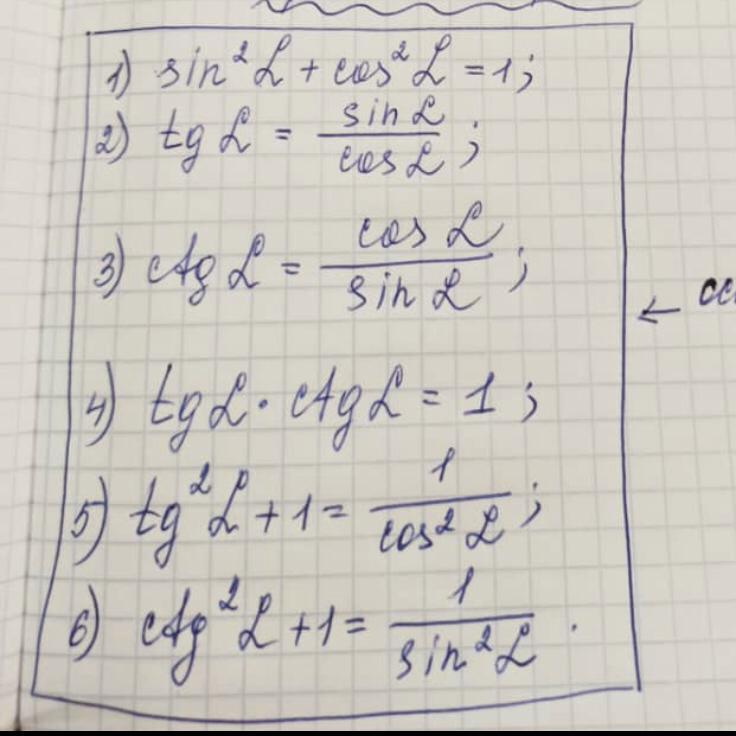 1) sin²α + cos²α = 1;
2) tg α = sin α / cos α ;
3) ctg α = cos α / sin α ;
4) tg α · ctg α = 1 ;
5) tg²α + 1 = 1 / cos² α ;
6) ctg²α + 1 = 1 / sin²α .